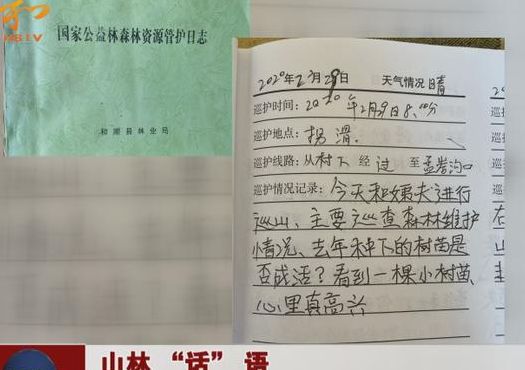 和
HBTV
国家公益林森林资源管护日志
和顺县林业局
2020年2月29日 天气情况 晴
巡护时间：2020年2月29日8:00分
巡护地点：拐滑
巡护线路：从村下 经 过 至 孟岩沟口
巡护情况记录：今天和姨夫进行
巡山、主要巡查森林维护
情况、去年种下的树苗是
否成活？看到一棵小树苗、
心里真高兴
山林“话”语